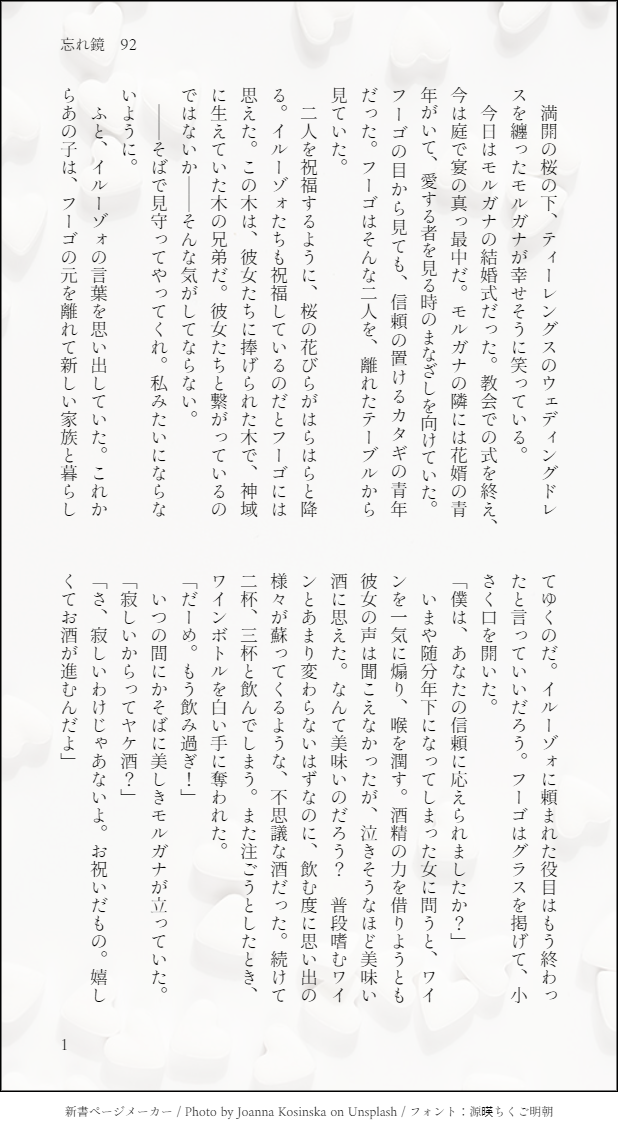 忘れ鏡　92
　満開の桜の下、ティーレングスのウェディングドレ
スを纏ったモルガナが幸せそうに笑っている。
　今日はモルガナの結婚式だった。教会での式を終え、
今は庭で宴の真っ最中だ。モルガナの隣には花婿の青
年がいて、愛する者を見る時のまなざしを向けていた。
フーゴの目から見ても、信頼の置けるカタギの青年
だった。フーゴはそんな二人を、離れたテーブルから
見ていた。
　二人を祝福するように、桜の花びらがはらはらと降
る。イルーゾォたちも祝福しているのだとフーゴには
思えた。この木は、彼女たちに捧げられた木で、神域
に生えていた木の兄弟だ。彼女たちと繋がっているの
ではないか――そんな気がしてならない。
　――そばで見守ってやってくれ。私みたいにならな
いように。
　ふと、イルーゾォの言葉を思い出していた。これか
らあの子は、フーゴの元を離れて新しい家族と暮らし
てゆくのだ。イルーゾォに頼まれた役目はもう終わっ
たと言っていいだろう。フーゴはグラスを掲げて、小
さく口を開いた。
「僕は、あなたの信頼に応えられましたか？」
　いまや随分年下になってしまった女に問うと、ワイ
ンを一気に煽り、喉を潤す。酒精の力を借りようとも
彼女の声は聞こえなかったが、泣きそうなほど美味い
酒に思えた。なんて美味いのだろう？　普段嗜むワイ
ンとあまり変わらないはずなのに、飲む度に思い出の
様々が蘇ってくるような、不思議な酒だった。続けて
二杯、三杯と飲んでしまう。また注ごうとしたとき、
ワインボトルを白い手に奪われた。
「だーめ。もう飲み過ぎ！」
　いつの間にかそばに美しきモルガナが立っていた。
「寂しいからってヤケ酒？」
「さ、寂しいわけじゃあないよ。お祝いだもの。嬉し
くてお酒が進むんだよ」
1
新書ページメーカー / Photo by Joanna Kosinska on Unsplash / フォント：源暎ちくご明朝